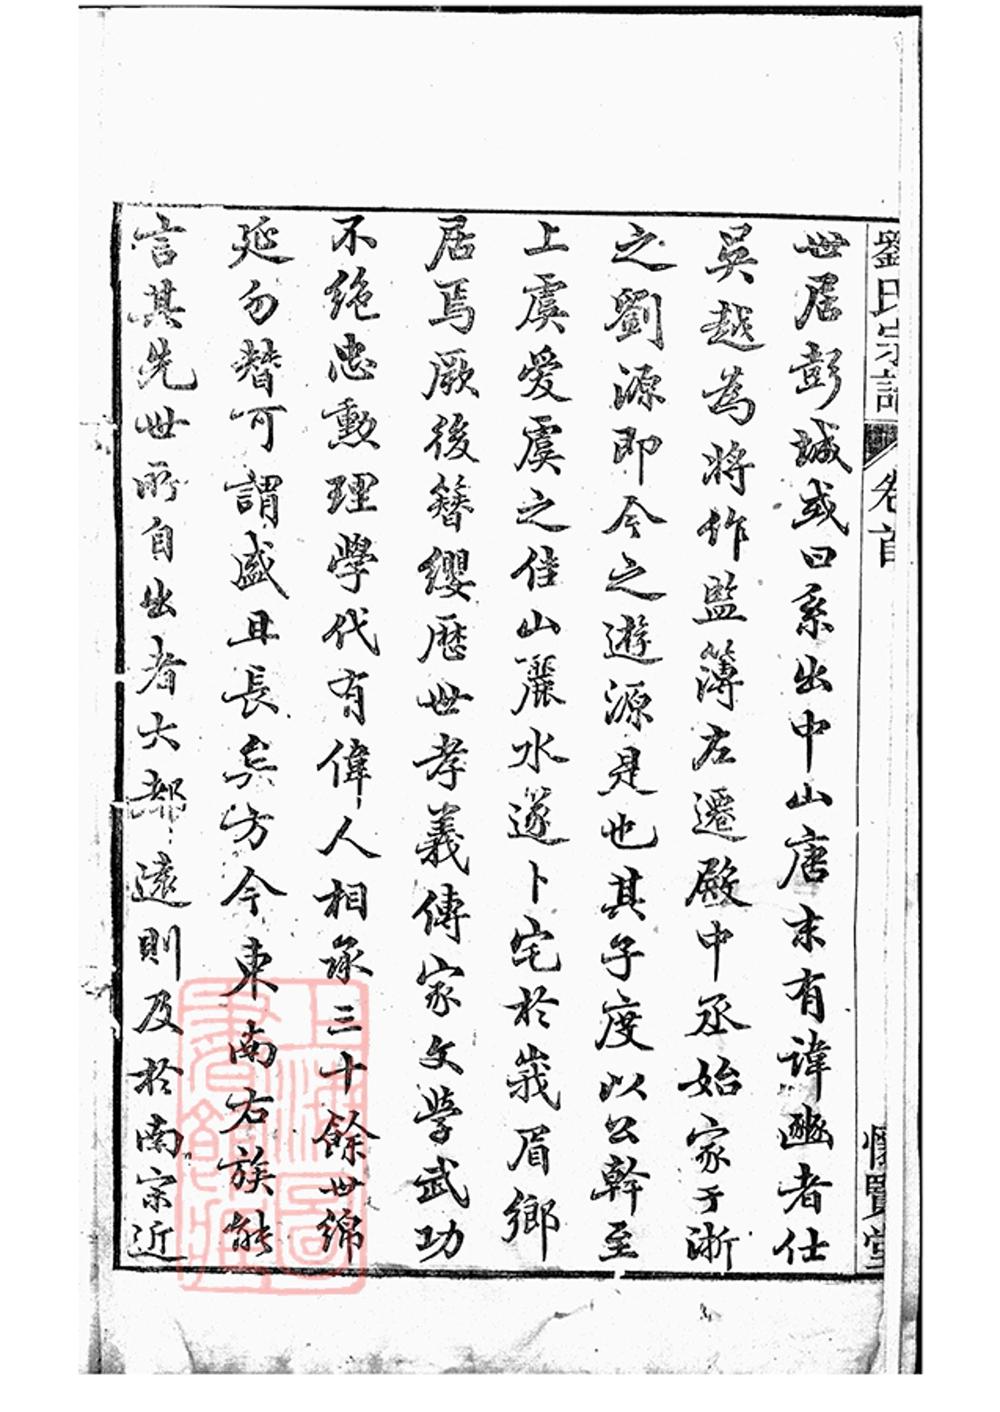 劉氏宗譜 卷首 懷賢堂
世居彭城或曰系出中山唐末有諱豳者仕
吳越為將作監簿左遷殿中丞始家于浙
之劉源即今之遊源是也其子度以公幹至
上虞愛虞之佳山麗水遂卜宅於峩眉鄉
居焉厥後簪纓歷世孝義傳家文學武功
不絕忠勳理學代有偉人相承三十餘世綿
延勿替可謂盛且長矣方今東南右族能
言其先世所自出者大都遠則及於南宗近
上海圖書館藏